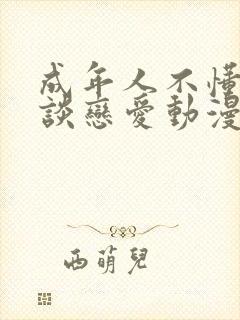 成年人不懂
談戀愛動漫
西萌兒